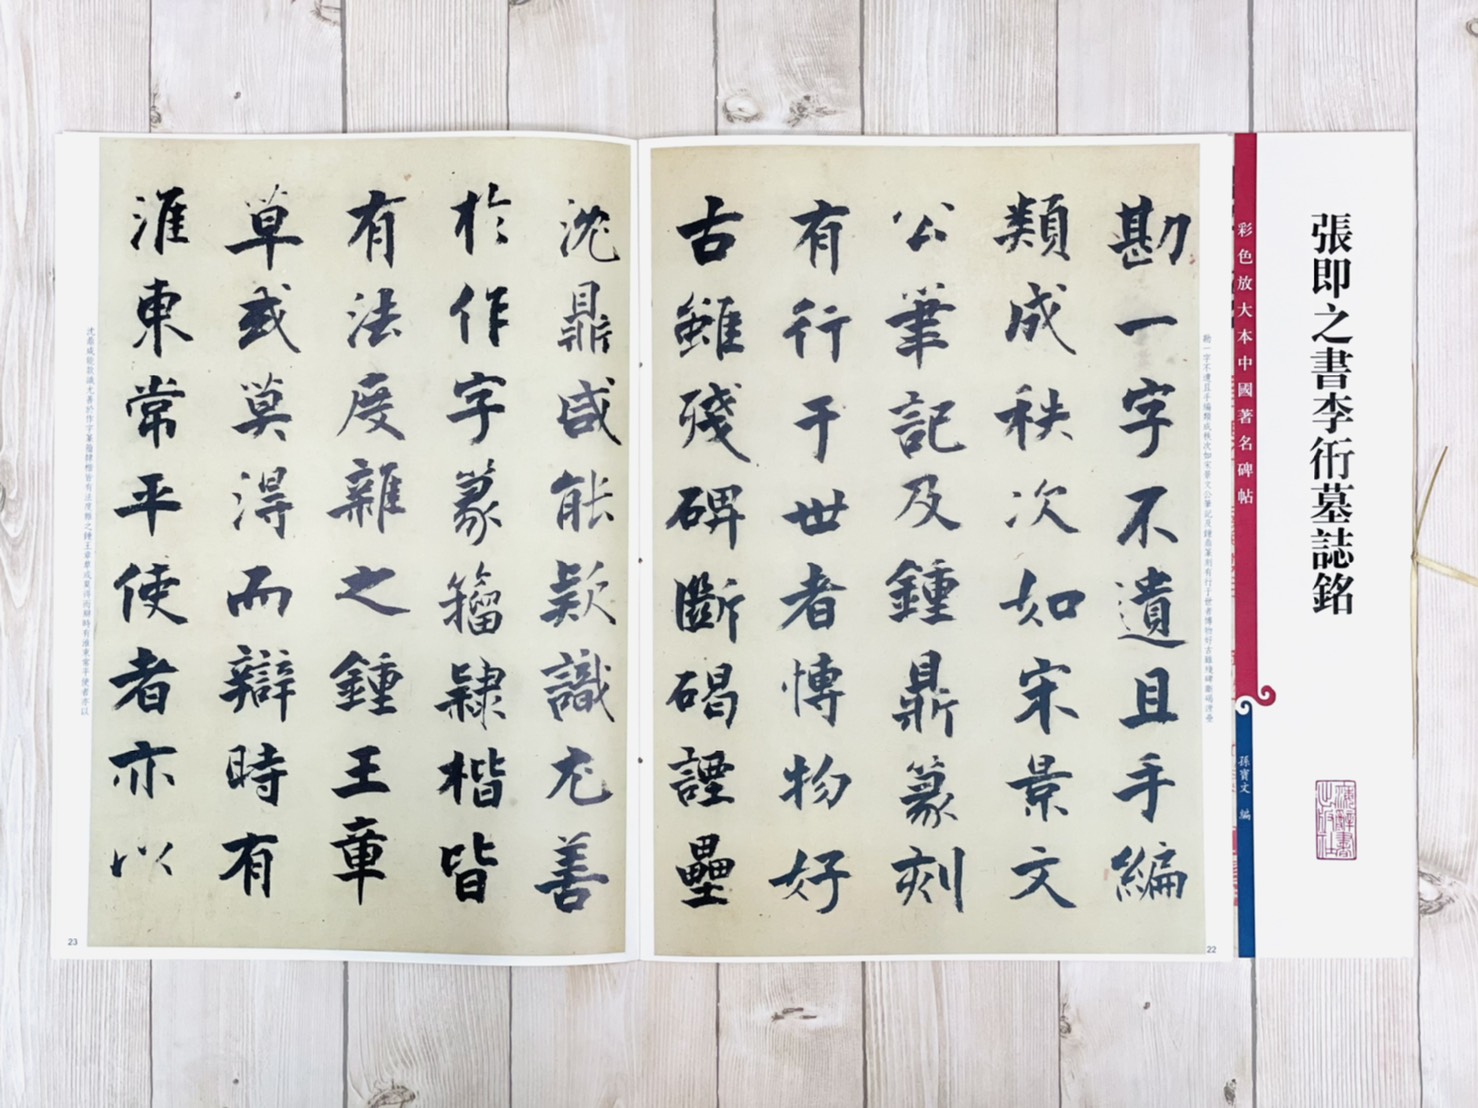 張即之書李衎墓誌銘
彩色放大本中國著名碑帖
孫寶文 編
勘一字不遺且手編類成秩次如宋景文公筆記及鍾鼎篆刻有行于世者博物好古雖殘碑斷碣
勘一字不遺且手編
類成秩次如宋景文
公筆記及鍾鼎篆刻
有行于世者博物好
古雖殘碑斷碣諲壘
22
沈鼎咸能款識尤善
於作字篆籀隸楷皆
有法度雜之鍾王章
草或莫得而辯時有
淮東常平使者亦以
沈鼎咸能款識尤善於作字篆籀隸楷皆有法度雜之鍾王章草或莫得而辯時有淮東常平使者亦以
23